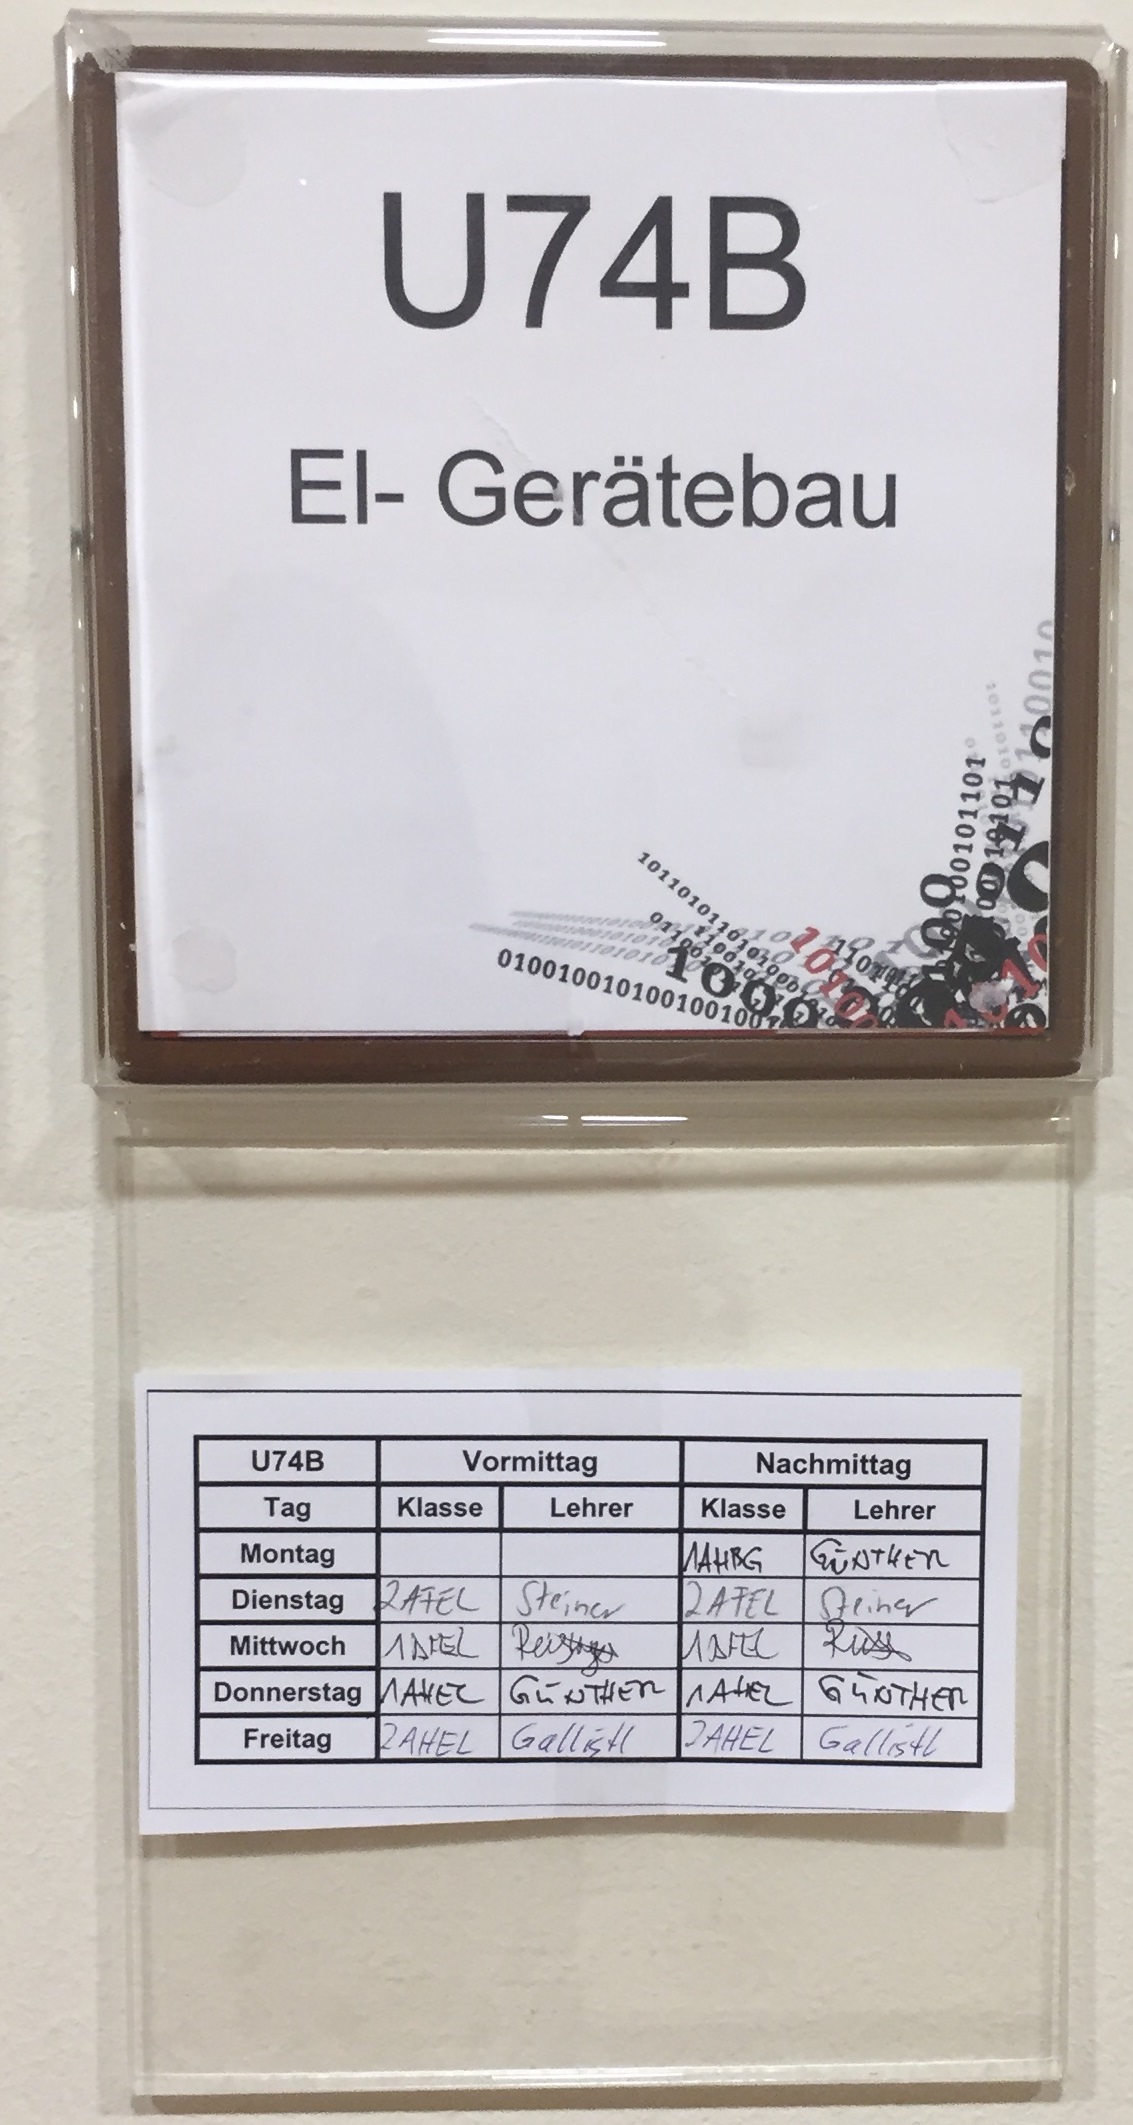 U74B
El- Gerätebau
U74B Vormittag Nachmittag
Tag Klasse Lehrer Klasse Lehrer
Montag 1AHBG GÜNTHER
Dienstag 2AFEL Steiner 2AFEL Steiner
Mittwoch 1DFEL 1DFEL
Donnerstag 1AHEL GÜNTHER 1AHEL GÜNTHER
Freitag 2AHEL Gallistl 2AHEL Gallistl